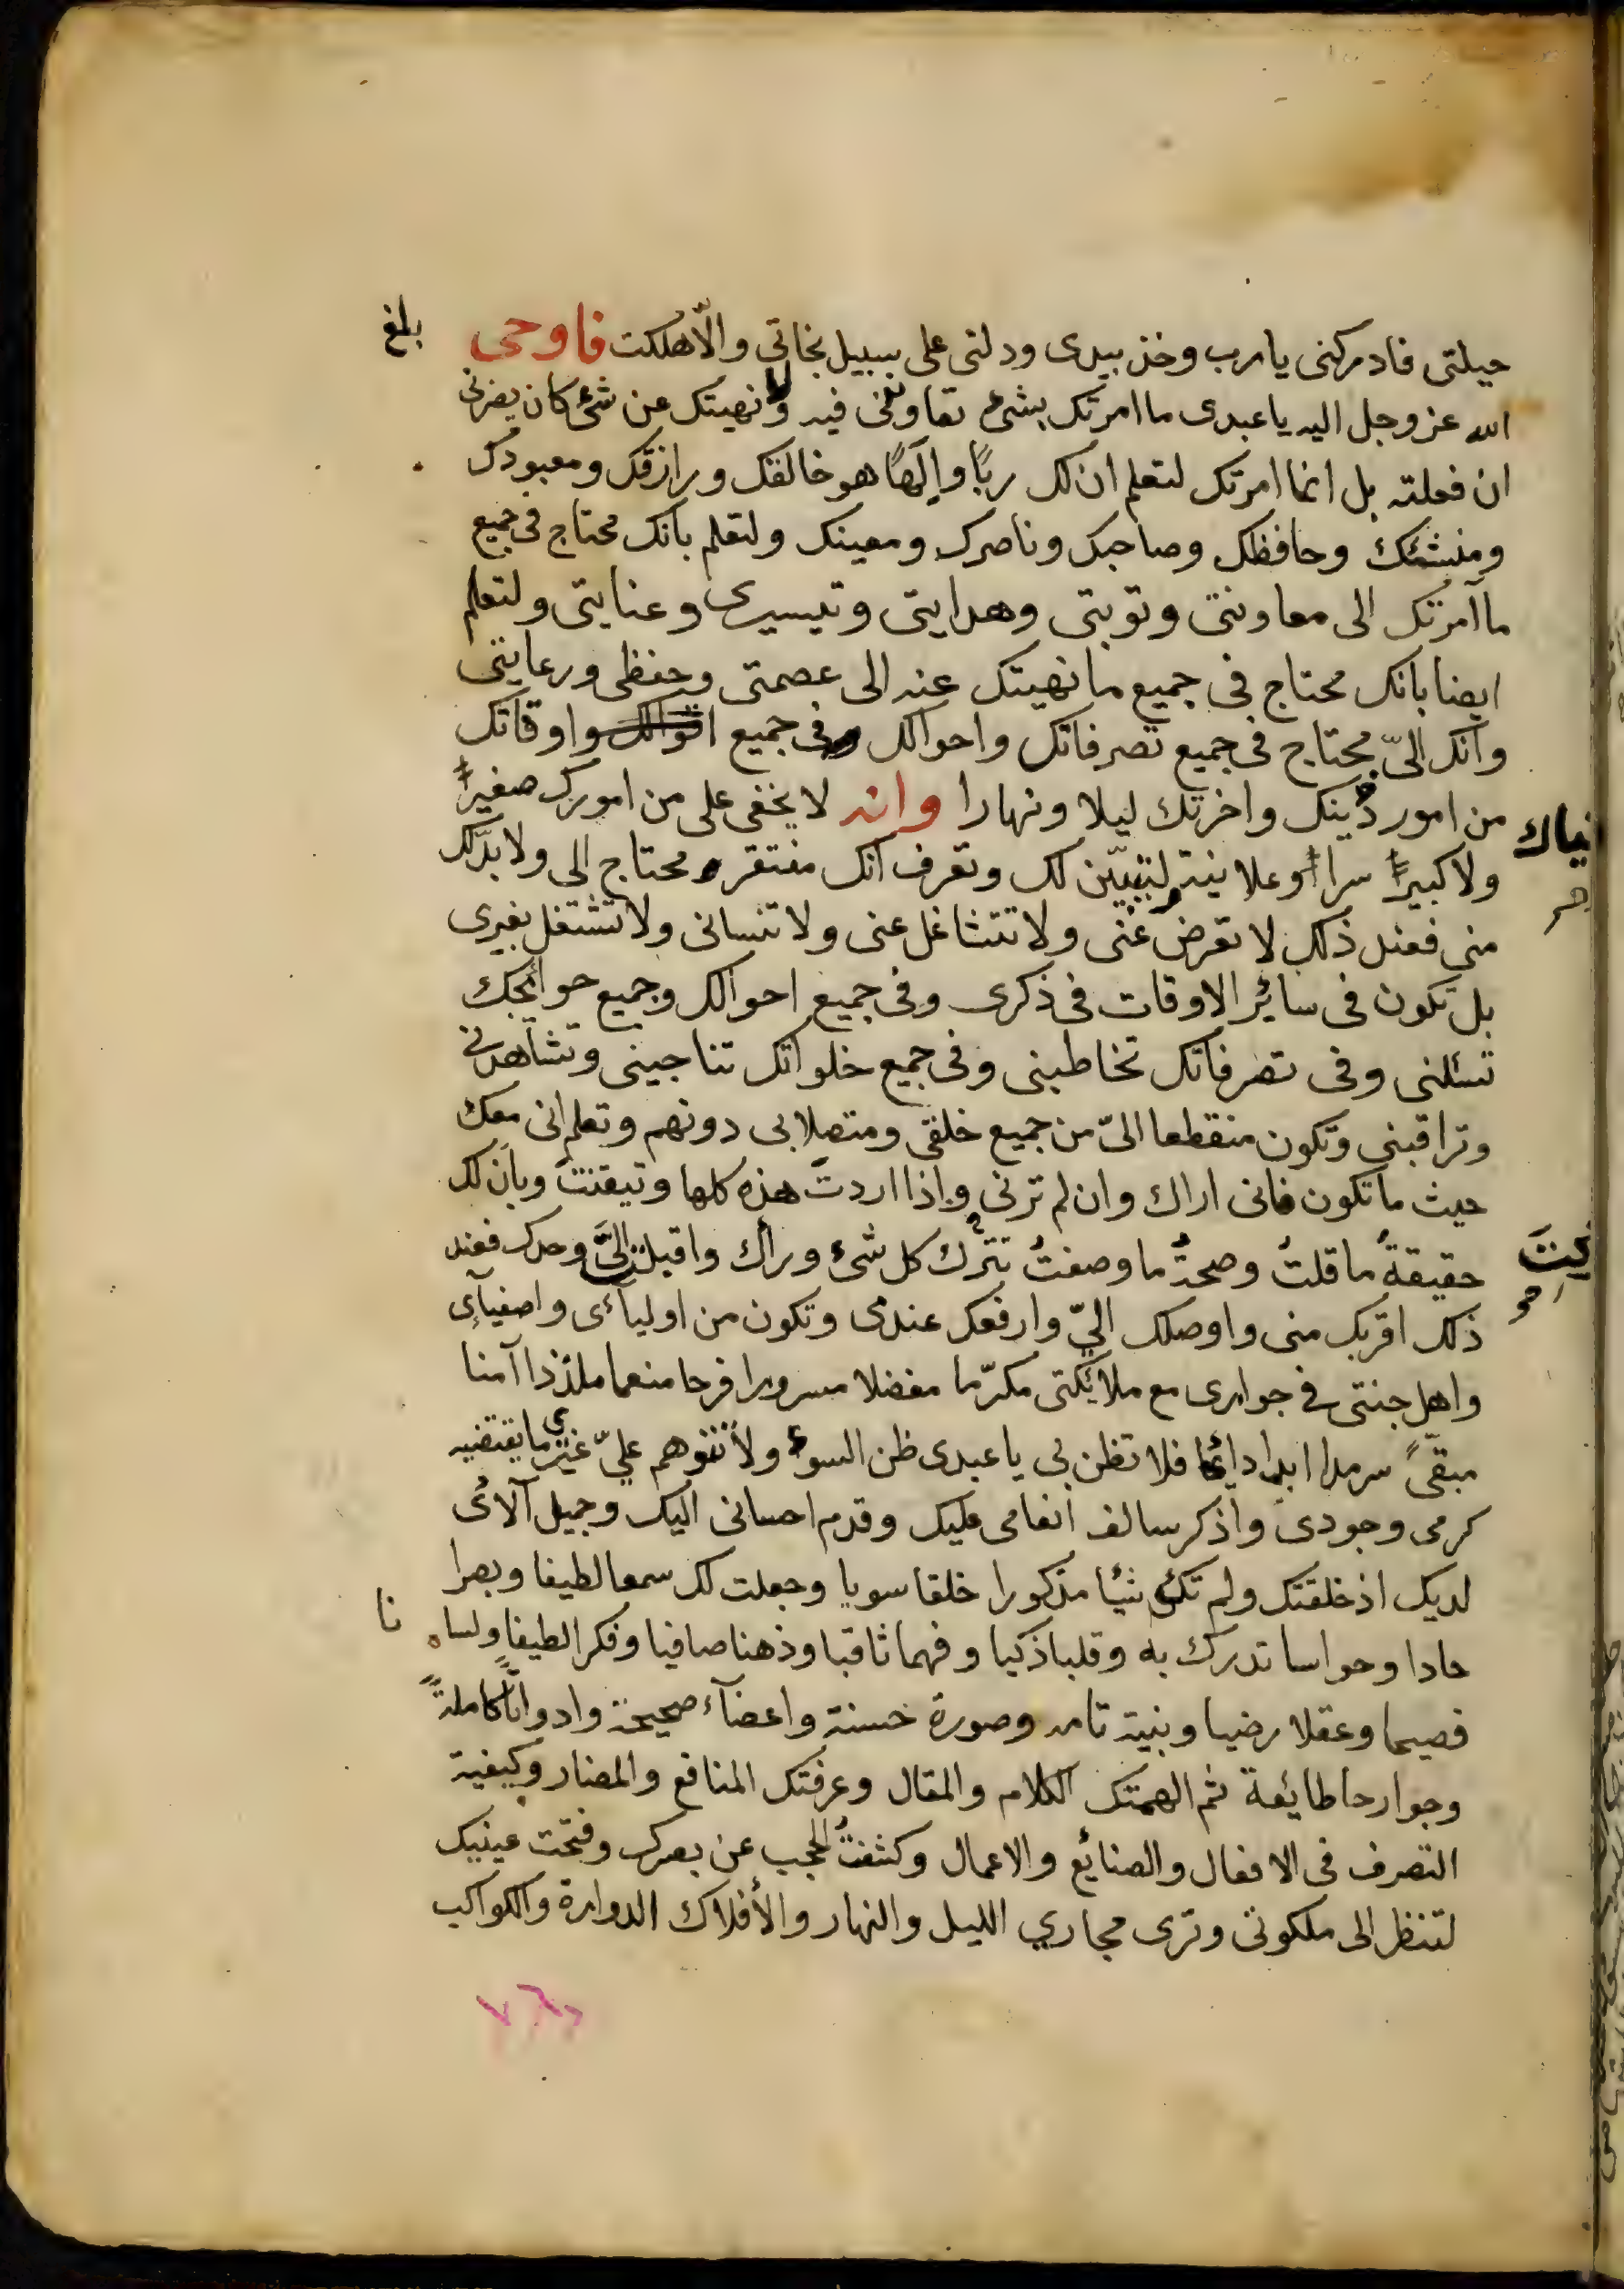 حيلتى فادركنى يا رب وخذ بيدى ودلنى على سبيل نجاتى والّا هلكت فاوحى
بلغ
الله عز وجل اليه يا عبدى ما امرتك بشئ تعاوننى فيه ولا نهيتك عن شئ كان يضرنى
ان فعلته بل انما امرتك لتعلم ان لك ربًّا وإلٰهًا هو خالقك ورازقك ومعبودك
ومنشئك وحافظك وصاحبك وناصرك ومعينك ولتعلم بانك محتاج فى جميع
ما آمرتك الى معاونتى وتوبتى وهدايتى وتيسيرى وعنايتى ولتعلم
ايضا بانك محتاج فى جميع ما نهيتك عنه الى عصمتى وحفظى ورعايتى
وانك الىّ محتاج فى جميع تصرفاتك واحوالك وفى جميع اقوالك واوقاتك
من امور دينك واخرتك ليلا ونهارا وانه لا يخفى على من امورك صغيرًا
نياك
ولا كبيرًا سرا وعلانية لتبيّن لك وتعرف انك مفتقر ومحتاج الى ولا بدّ لك
منى فعند ذلك لا تعرض عنى ولا تتشاغل عنى ولا تنسانى ولا تشتغل بغيرى
بل تكون فى سائر الاوقات فى ذكرى وفى جميع احوالك وجميع حوائجك
تسئلنى وفى تصرفاتك تخاطبنى وفى جميع خلواتك تناجينى وتشاهدنى
وتراقبنى وتكون منقطعا الىّ من جميع خلقى ومتصلا بى دونهم وتعلم انى معك
حيث ما تكون فانى اراك وان لم ترنى واذا اردت هذه كلها وتيقنت وبان لك
حقيقةُ ما قلتُ وصحةُ ما وصفتُ تترك كل شئ وراك واقبلت الىَّ وحدك فعند
ذلك اقربك منى واوصلك الىّ وارفعك عندى وتكون من اوليآئى واصفيآى
واهل جنتى فى جوارى مع ملائكتى مكرّما مفضلا مسرورا فرحا منعما ملذذا آمنا
مبقىً سرمدا ابدا دائما فلا تظن بى يا عبدى ظن السوء ولا تتوهم علىّ غير ما يقتضيه
كرمى وجودى واذكر سالف انعامى عليك وقدم احسانى اليك وجميل آلائى
لديك اذ خلقتك ولم تك شيئا مذكورا خلقا سويا وجعلت لك سمعا لطيفا وبصرا
حادا وحواسا تدرك به وقلبا ذكيا وفهما ثاقبا وذهنا صافيا وفكرا لطيفا ولسا نا
فصيحا وعقلا رضيا وبنية تامه وصورة حسنة واعضآء صحيحة وادواتًا كاملةً
وجوارحا طائعة ثم الهمتك الكلام والمقال وعرفتك المنافع والمضار وكيفية
التصرف فى الافعال والصنائع والاعمال وكشفتُ الحجب عن بصرك وفتحت عينيك
لتنظر الى ملكوتى وترى مجاري الليل والنهار والأفلاك الدوارة والكواكب